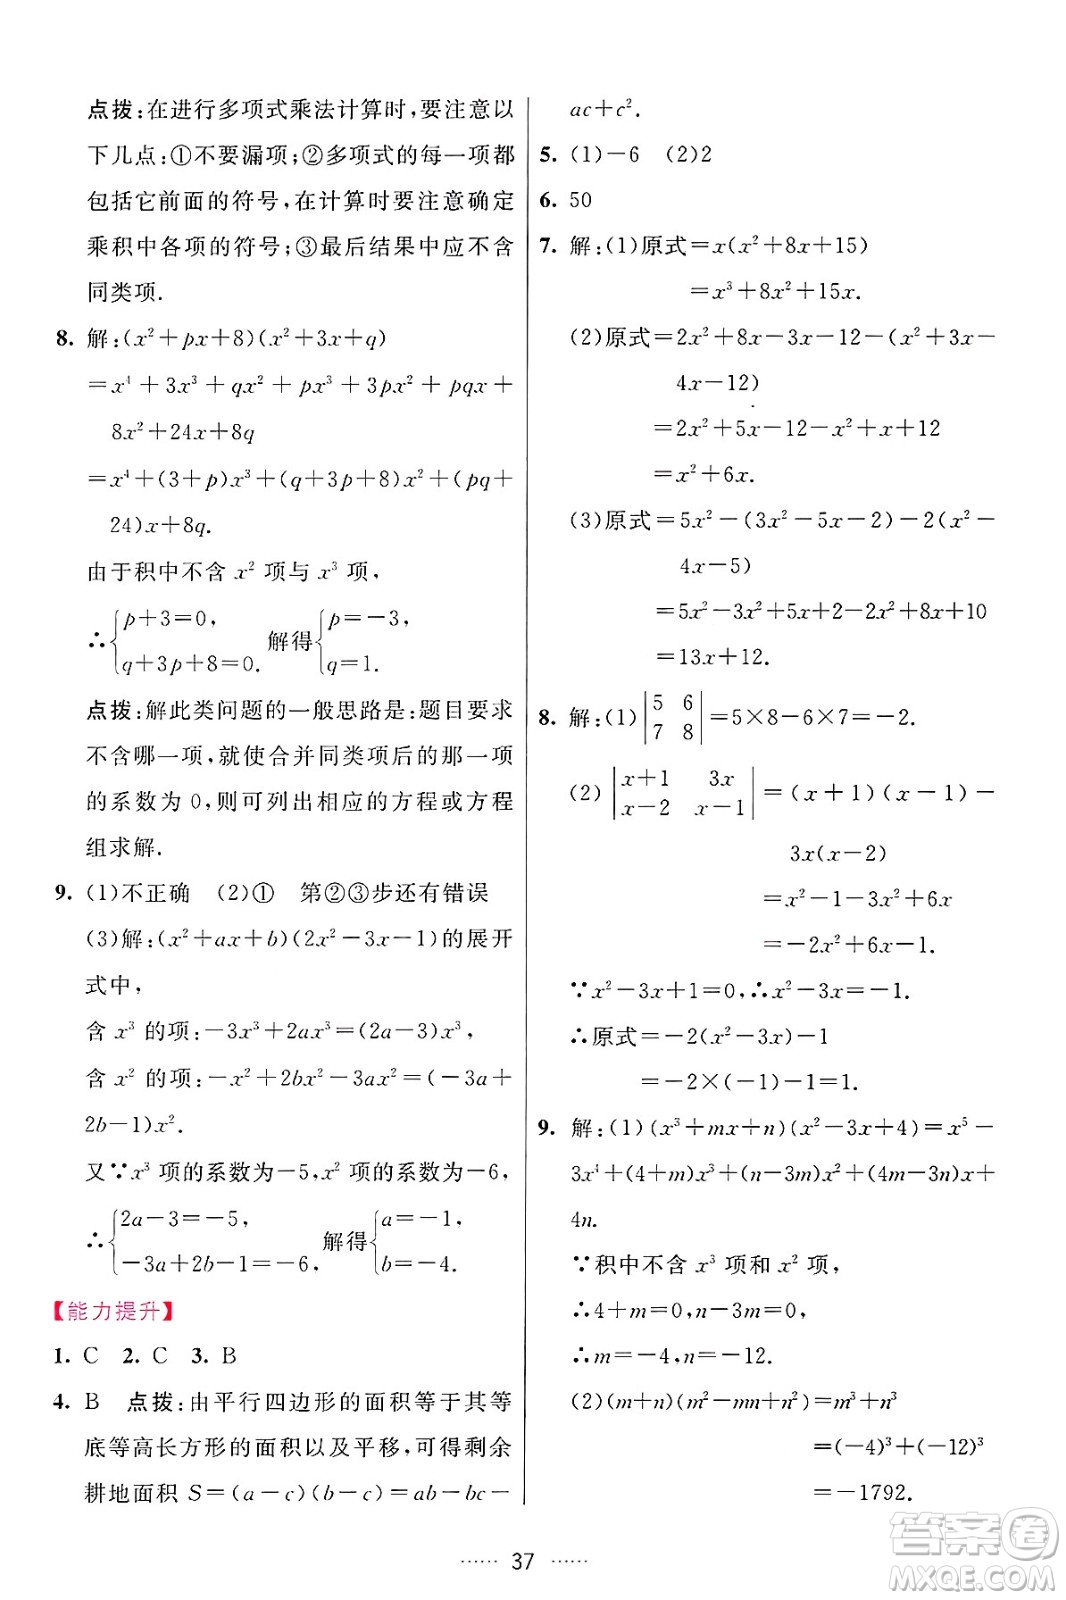 点拨:在进行多项式乘法计算时,要注意以
下几点:①不要漏项;②多项式的每一项都
包括它前面的符号,在计算时要注意确定
乘积中各项的符号;③最后结果中应不含
同类项.
8. 解:(x²+px+8)(x²+3x+q)
=x⁴+3x³+qx²+px³+3px²+pqx+
8x²+24x+8q
=x⁴+(3+p)x³+(q+3p+8)x²+(pq+
24)x+8q.
由于积中不含 x² 项与 x³ 项,
∴{p+3=0, q+3p+8=0. 解得{p=-3, q=1.
点拨:解此类问题的一般思路是:题目要求
不含哪一项,就使合并同类项后的那一项
的系数为 0,则可列出相应的方程或方程
组求解.
9. (1)不正确 (2)① 第②③步还有错误
(3)解:(x²+ax+b)(2x²-3x-1)的展开
式中,
含 x³ 的项:-3x³+2ax³=(2a-3)x³,
含 x² 的项:-x²+2bx²-3ax²=(-3a+
2b-1)x².
又∵x³ 项的系数为-5,x² 项的系数为-6,
∴{2a-3=-5, -3a+2b-1=-6, 解得{a=-1, b=-4.
【能力提升】
1. C 2. C 3. B
4. B 点拨:由平行四边形的面积等于其等
底等高长方形的面积以及平移,可得剩余
耕地面积 S=(a-c)(b-c)=ab-bc-
ac+c².
5. (1)-6 (2)2
6. 50
7. 解:(1)原式=x(x²+8x+15)
=x³+8x²+15x.
(2)原式=2x²+8x-3x-12-(x²+3x-
4x-12)
=2x²+5x-12-x²+x+12
=x²+6x.
(3)原式=5x²-(3x²-5x-2)-2(x²-
4x-5)
=5x²-3x²+5x+2-2x²+8x+10
=13x+12.
8. 解:(1)|5 6 7 8|=5×8-6×7=-2.
(2)|x+1 3x x-2 x-1|=(x+1)(x-1)-
3x(x-2)
=x²-1-3x²+6x
=-2x²+6x-1.
∵x²-3x+1=0,∴x²-3x=-1.
∴原式=-2(x²-3x)-1
=-2×(-1)-1=1.
9. 解:(1)(x³+mx+n)(x²-3x+4)=x⁵-
3x⁴+(4+m)x³+(n-3m)x²+(4m-3n)x+
4n.
∵积中不含 x³ 项和 x² 项,
∴4+m=0,n-3m=0,
∴m=-4,n=-12.
(2)(m+n)(m²-mn+n²)=m³+n³
=(-4)³+(-12)³
=-1792.
37
答案卷
MXQE.COM